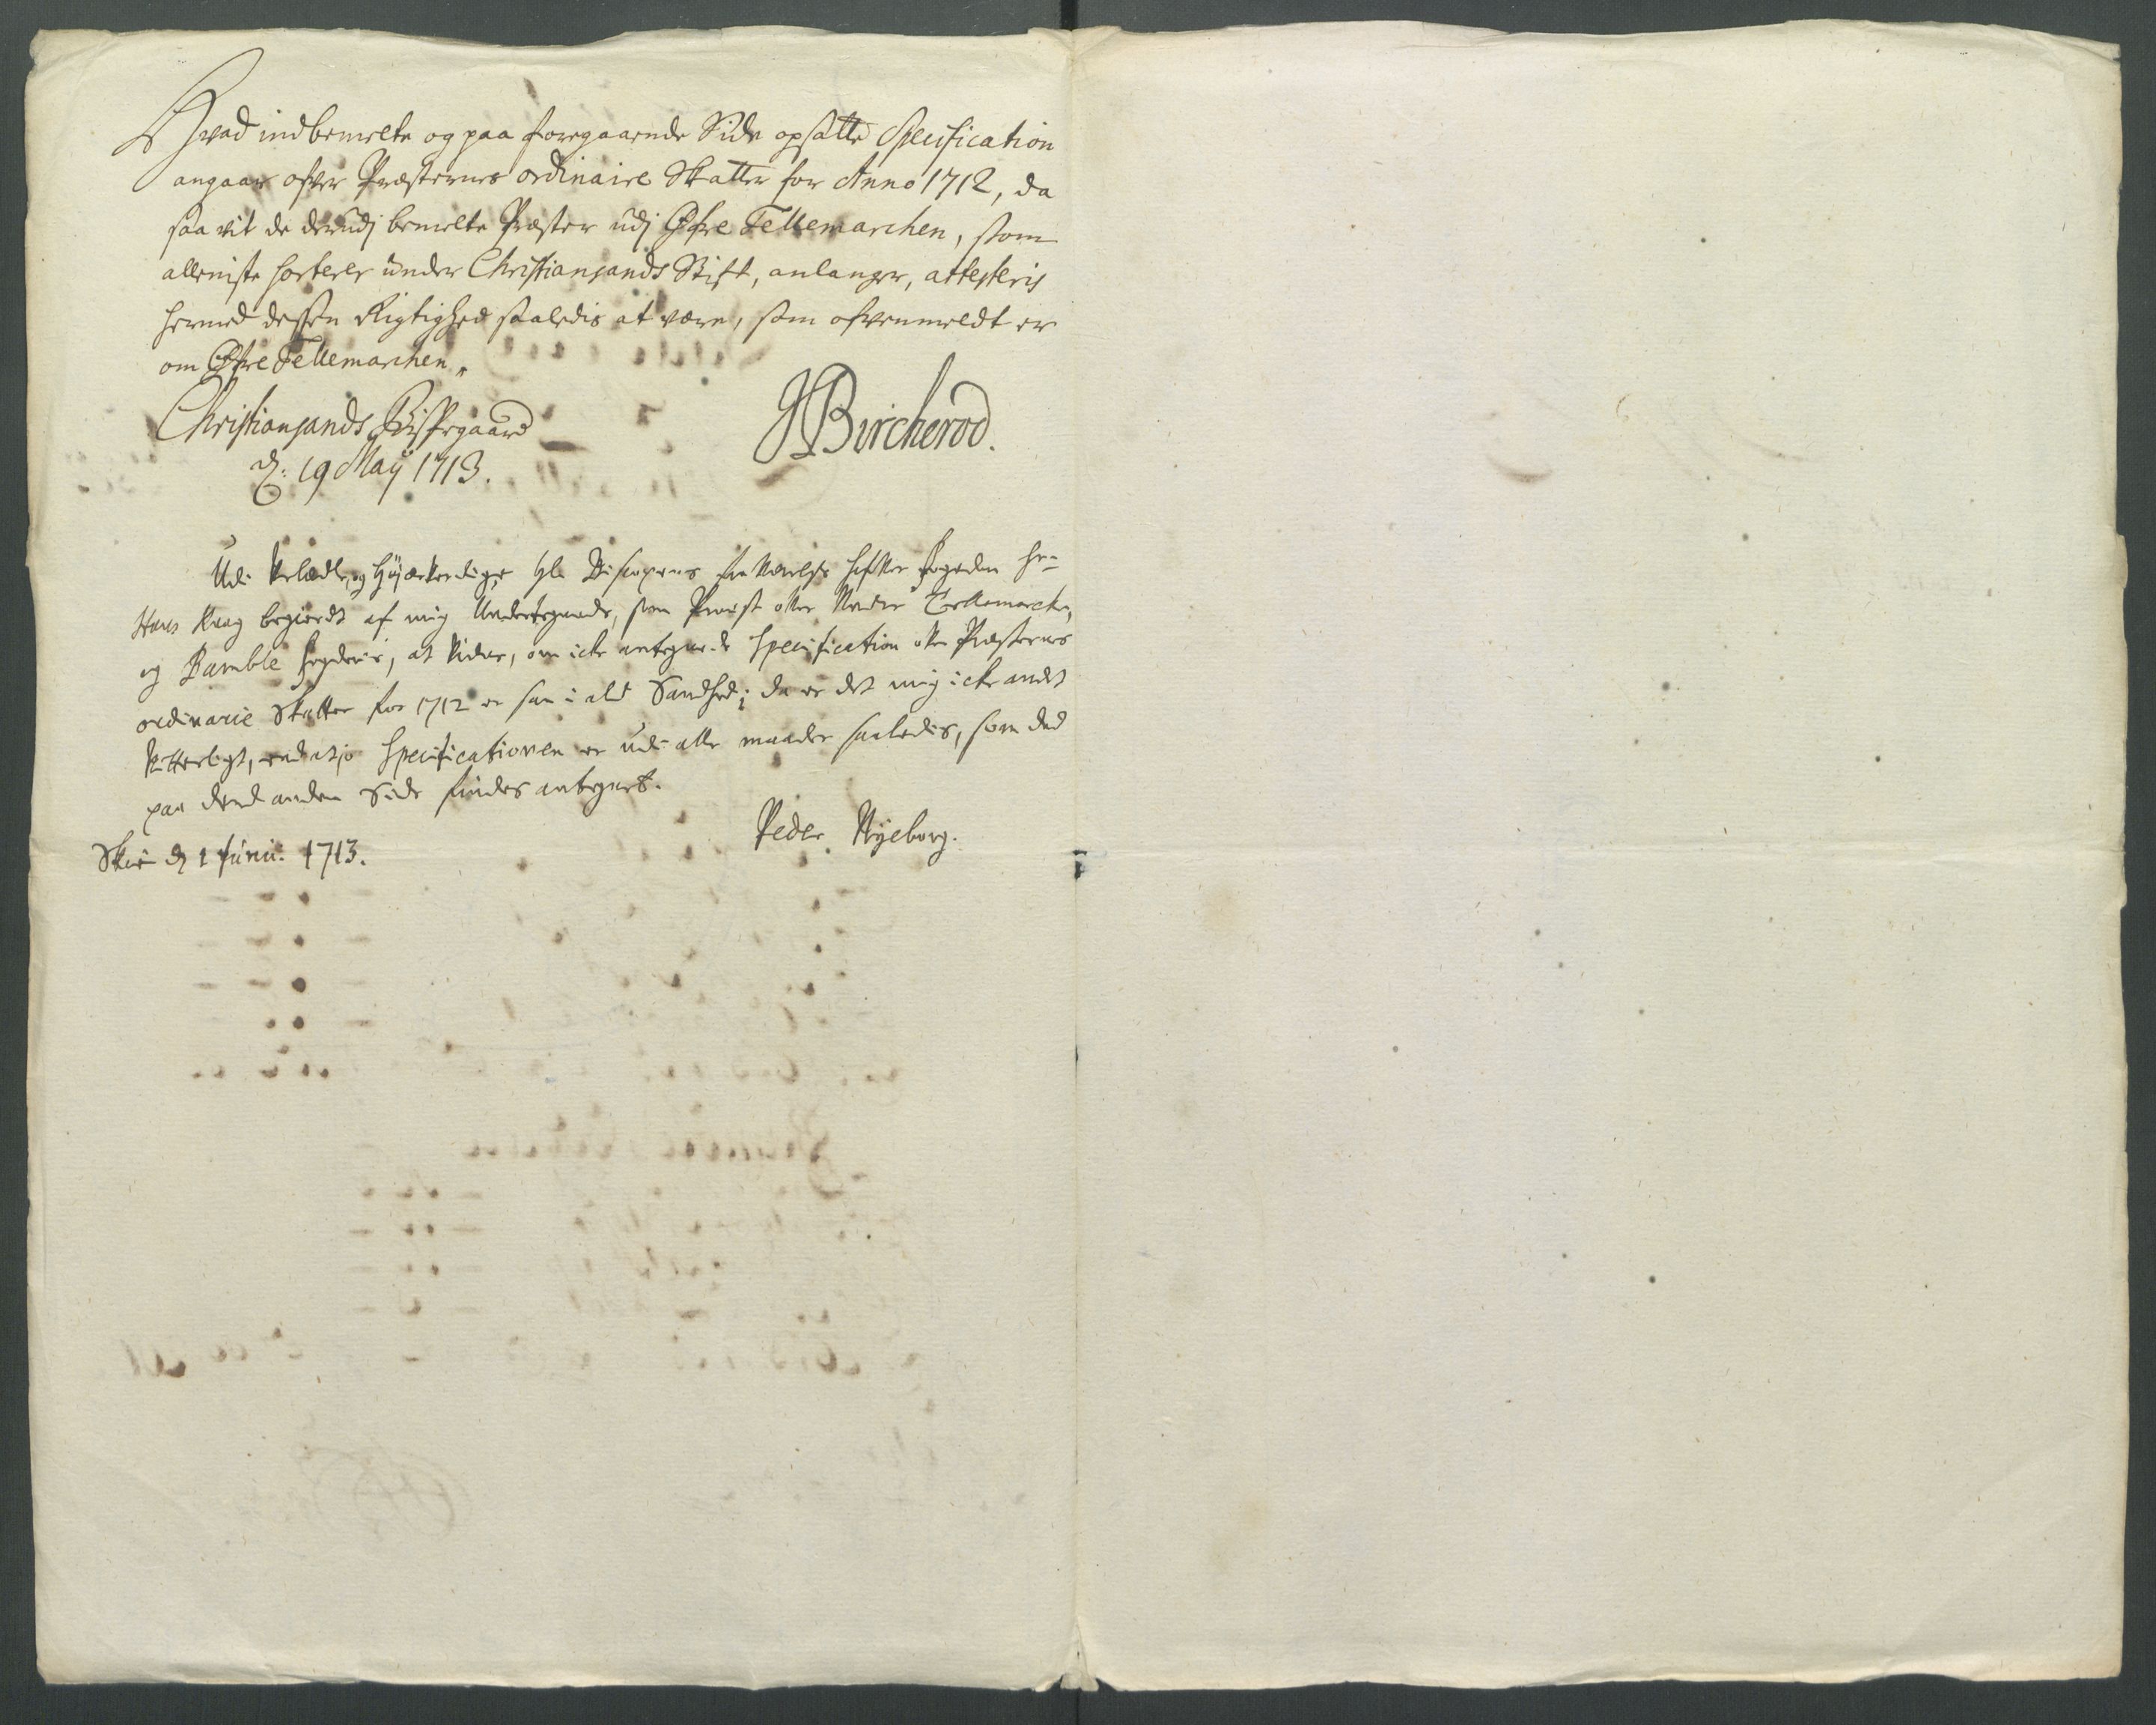 Hvad indbemelte og paa foregaaende Side opsatte Specification
angaar ofver Præsternes ordinaire Skatter for Anno 1712, da
saa vit de derudj bemelte Præster udj Øfre Tellemarchen, som
alleniste sorterer under Christiansands Stift, anlanger, attesteris
hermed dessen Rigtighed saaledis at være, som ofvenmeldt er
om Øfre Tellemarchen„
Christiansands Bispegaard
d: 19 Maÿ 1713.
JBircherod.
Udi Velædle og Høÿærverdige Hr Biscopens fraværelse hafver Fogeden Sr
Hans begierdt af mig Undertegnede, som Provst ofver Nedre Tellemarchen,
og Bamble fogderie, at vidne, om icke antegnede Specification ofver Præsternes
ordinarie Skatter for 1712 er saa i ald Sandhed; da er det mig icke andet
vitterligt, end at jo Specificationen er udi alle maader saaledis, som ded
paa dend anden Side findes antegnet.
Peder Nÿeborg.
Skien d 1 Junii 1713.